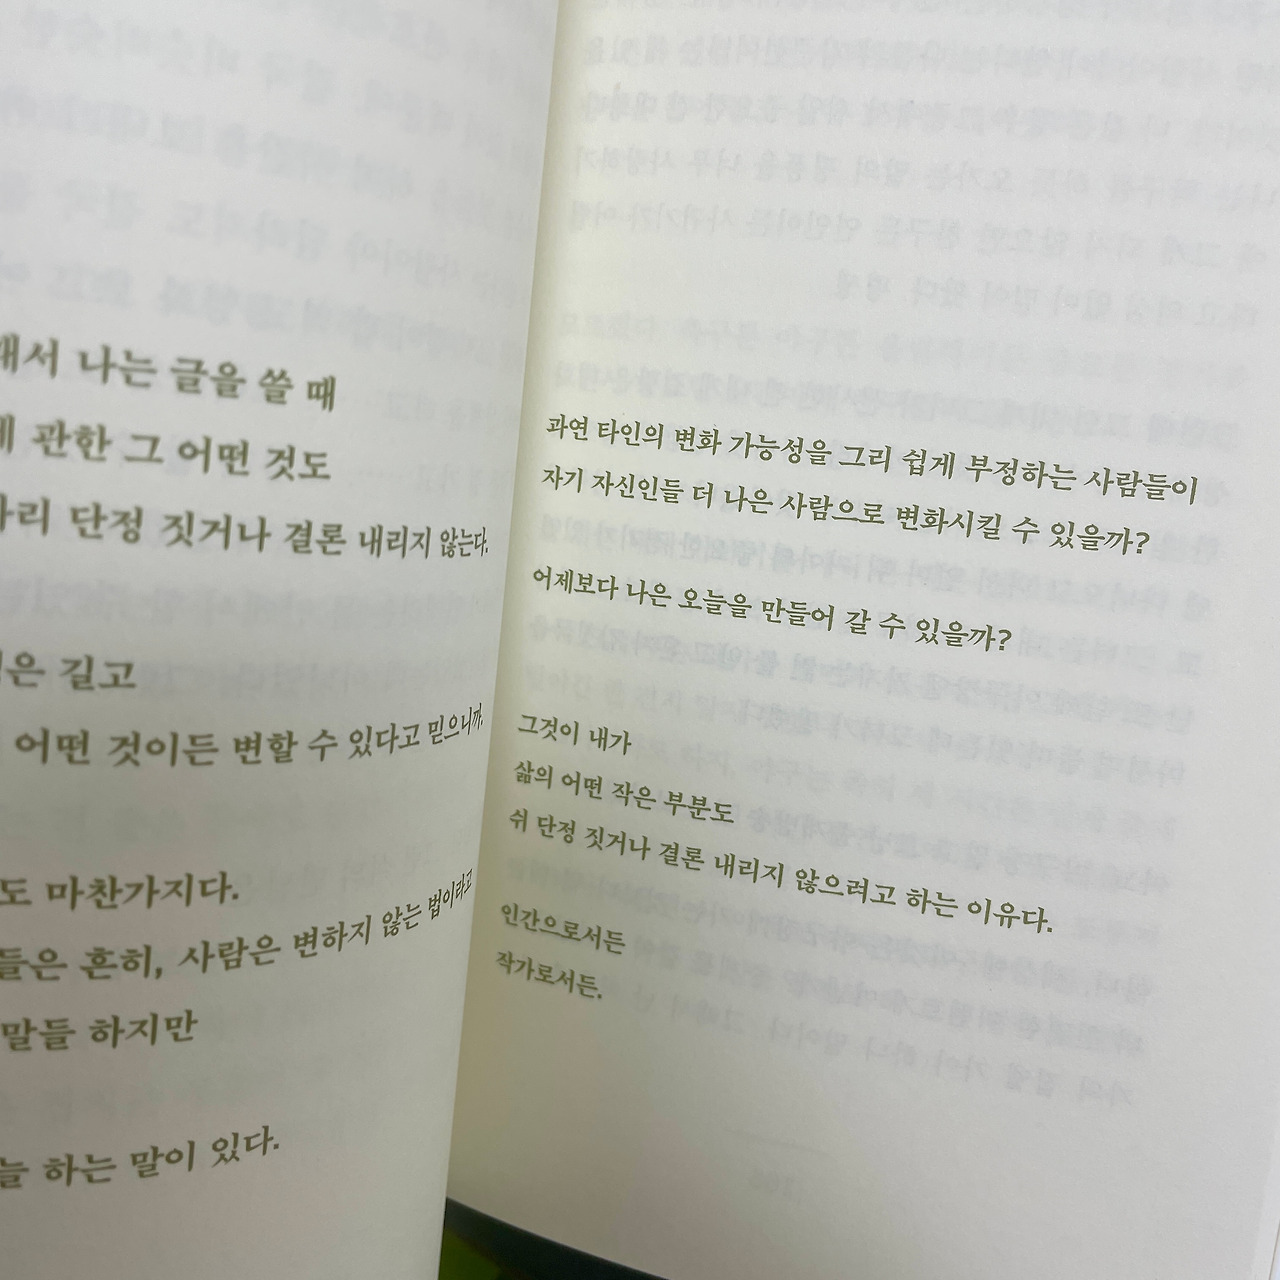 나는 글을 쓸 때
관한 그 어떤 것도
단정 짓거나 결론 내리지 않는다.
길고
어떤 것이든 변할 수 있다고 믿으니까.
마찬가지다.
흔히, 사람은 변하지 않는 법이라고
말들 하지만
하는 말이 있다.
과연 타인의 변화 가능성을 그리 쉽게 부정하는 사람들이
자기 자신인들 더 나은 사람으로 변화시킬 수 있을까?
어제보다 나은 오늘을 만들어 갈 수 있을까?
그것이 내가
삶의 어떤 작은 부분도
쉬 단정 짓거나 결론 내리지 않으려고 하는 이유다.
인간으로서든
작가로서든.